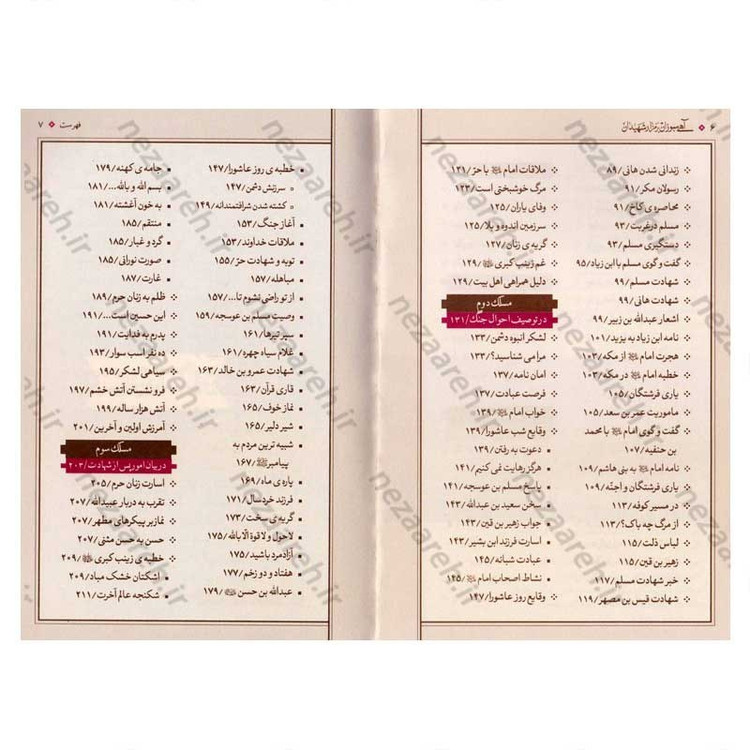 ۶ آهی سوزان بر مزار شهیدان
زندانی شدن هانی/۸۹
رسولان مکر/۹۱
محاصره ی کاخ/۹۱
مسلم در غربت/۹۳
دستگیری مسلم/۹۳
گفت و گوی مسلم با ابن زیاد/۹۵
شهادت مسلم/۹۹
شهادت هانی/۹۹
اشعار عبدالله بن زبیر/۹۹
نامه ابن زیاد به یزید/۱۰۱
هجرت امام از مکه/۱۰۳
خطبه امام در مکه/۱۰۳
یاری فرشتگان/۱۰۵
ماموریت عمر بن سعد/۱۰۵
گفت و گوی امام با محمد
بن حنفیه/۱۰۷
نامه امام به بنی هاشم/۱۰۹
یاری فرشتگان و اجنّه/۱۰۹
در مسیر کوفه/۱۱۳
از مرگ چه باک؟/۱۱۳
لباس ذلت/۱۱۵
زهیر بن قین/۱۱۵
خبر شهادت مسلم/۱۱۷
شهادت قیس بن مصهر/۱۱۹
ملاقات امام با حرّ/۱۲۱
مرگ خوشبختی است/۱۲۳
وفای یاران/۱۲۵
سرزمین اندوه و بلا/۱۲۵
گریه ی زنان/۱۲۷
غم زینب کبری/۱۲۹
دلیل همراهی اهل بیت/۱۲۹
مسلک دوم
در توصیف احوال جنگ/۱۳۱
لشکر انبوه دشمن/۱۳۳
مرا می شناسید؟/۱۳۳
امان نامه/۱۳۷
فرصت عبادت/۱۳۷
خواب امام/۱۳۹
وقایع شب عاشورا/۱۳۹
دعوت به رفتن/۱۳۹
هرگز رهایت نمی کنیم/۱۴۱
پاسخ مسلم بن عوسجه/۱۴۱
سخن سعید بن عبدالله/۱۴۳
جواب زهیر بن قین/۱۴۳
اسارت فرزند ابن بشیر/۱۴۳
عبادت شبانه/۱۴۵
نشاط اصحاب امام/۱۴۵
وقایع روز عاشورا/۱۴۷
فهرست ۷
خطبه ی روز عاشورا/۱۴۷
سرزنش دشمن/۱۴۷
کشته شدن شرافتمندانه/۱۴۹
آغاز جنگ/۱۵۳
ملاقات خداوند/۱۵۳
توبه و شهادت حرّ/۱۵۵
مباهله/۱۵۷
از تو راضی نشوم تا.../۱۵۷
وصیت مسلم بن عوسجه/۱۵۹
سپر تیرها/۱۶۱
غلام سیاه چهره/۱۶۱
شهادت عمرو بن خالد/۱۶۳
قاری قرآن/۱۶۳
نماز خوف/۱۶۵
شیر دلیر/۱۶۵
شبیه ترین مردم به
پیامبر/۱۶۷
پاره ی ماه/۱۶۹
فرزند خردسال/۱۷۱
گریه ی سخت/۱۷۳
لا حول و لا قوة الا بالله/۱۷۵
آزادمرد باشید/۱۷۵
هفتاد و دو زخم/۱۷۷
عبدالله بن حسن/۱۷۹
جامه ی کهنه/۱۷۹
بسم الله و بالله.../۱۸۱
به خون آغشته/۱۸۱
منتقم/۱۸۵
گرد و غبار/۱۸۵
صورت نورانی/۱۸۵
غارت/۱۸۷
ظلم به زنان حرم/۱۸۹
این حسین است.../۱۹۱
پدرم به فدایت/۱۹۱
ده نفر اسب سوار/۱۹۳
سیاهی لشکر/۱۹۵
فرو نشستن آتش خشم/۱۹۷
آتش هزار ساله/۱۹۹
آمرزش اولین و آخرین/۲۰۱
مسلک سوم
در بیان امور پس از شهادت/۲۰۳
اسارت زنان حرم/۲۰۵
تقرب به دربار عبیدالله/۲۰۷
نماز بر پیکرهای مطهر/۲۰۷
حسن به حسن مثنی/۲۰۷
خطبه ی زینب کبری/۲۰۹
اشکتان خشک مباد/۲۰۹
شکنجه عالم آخرت/۲۱۱
nezaareh.ir